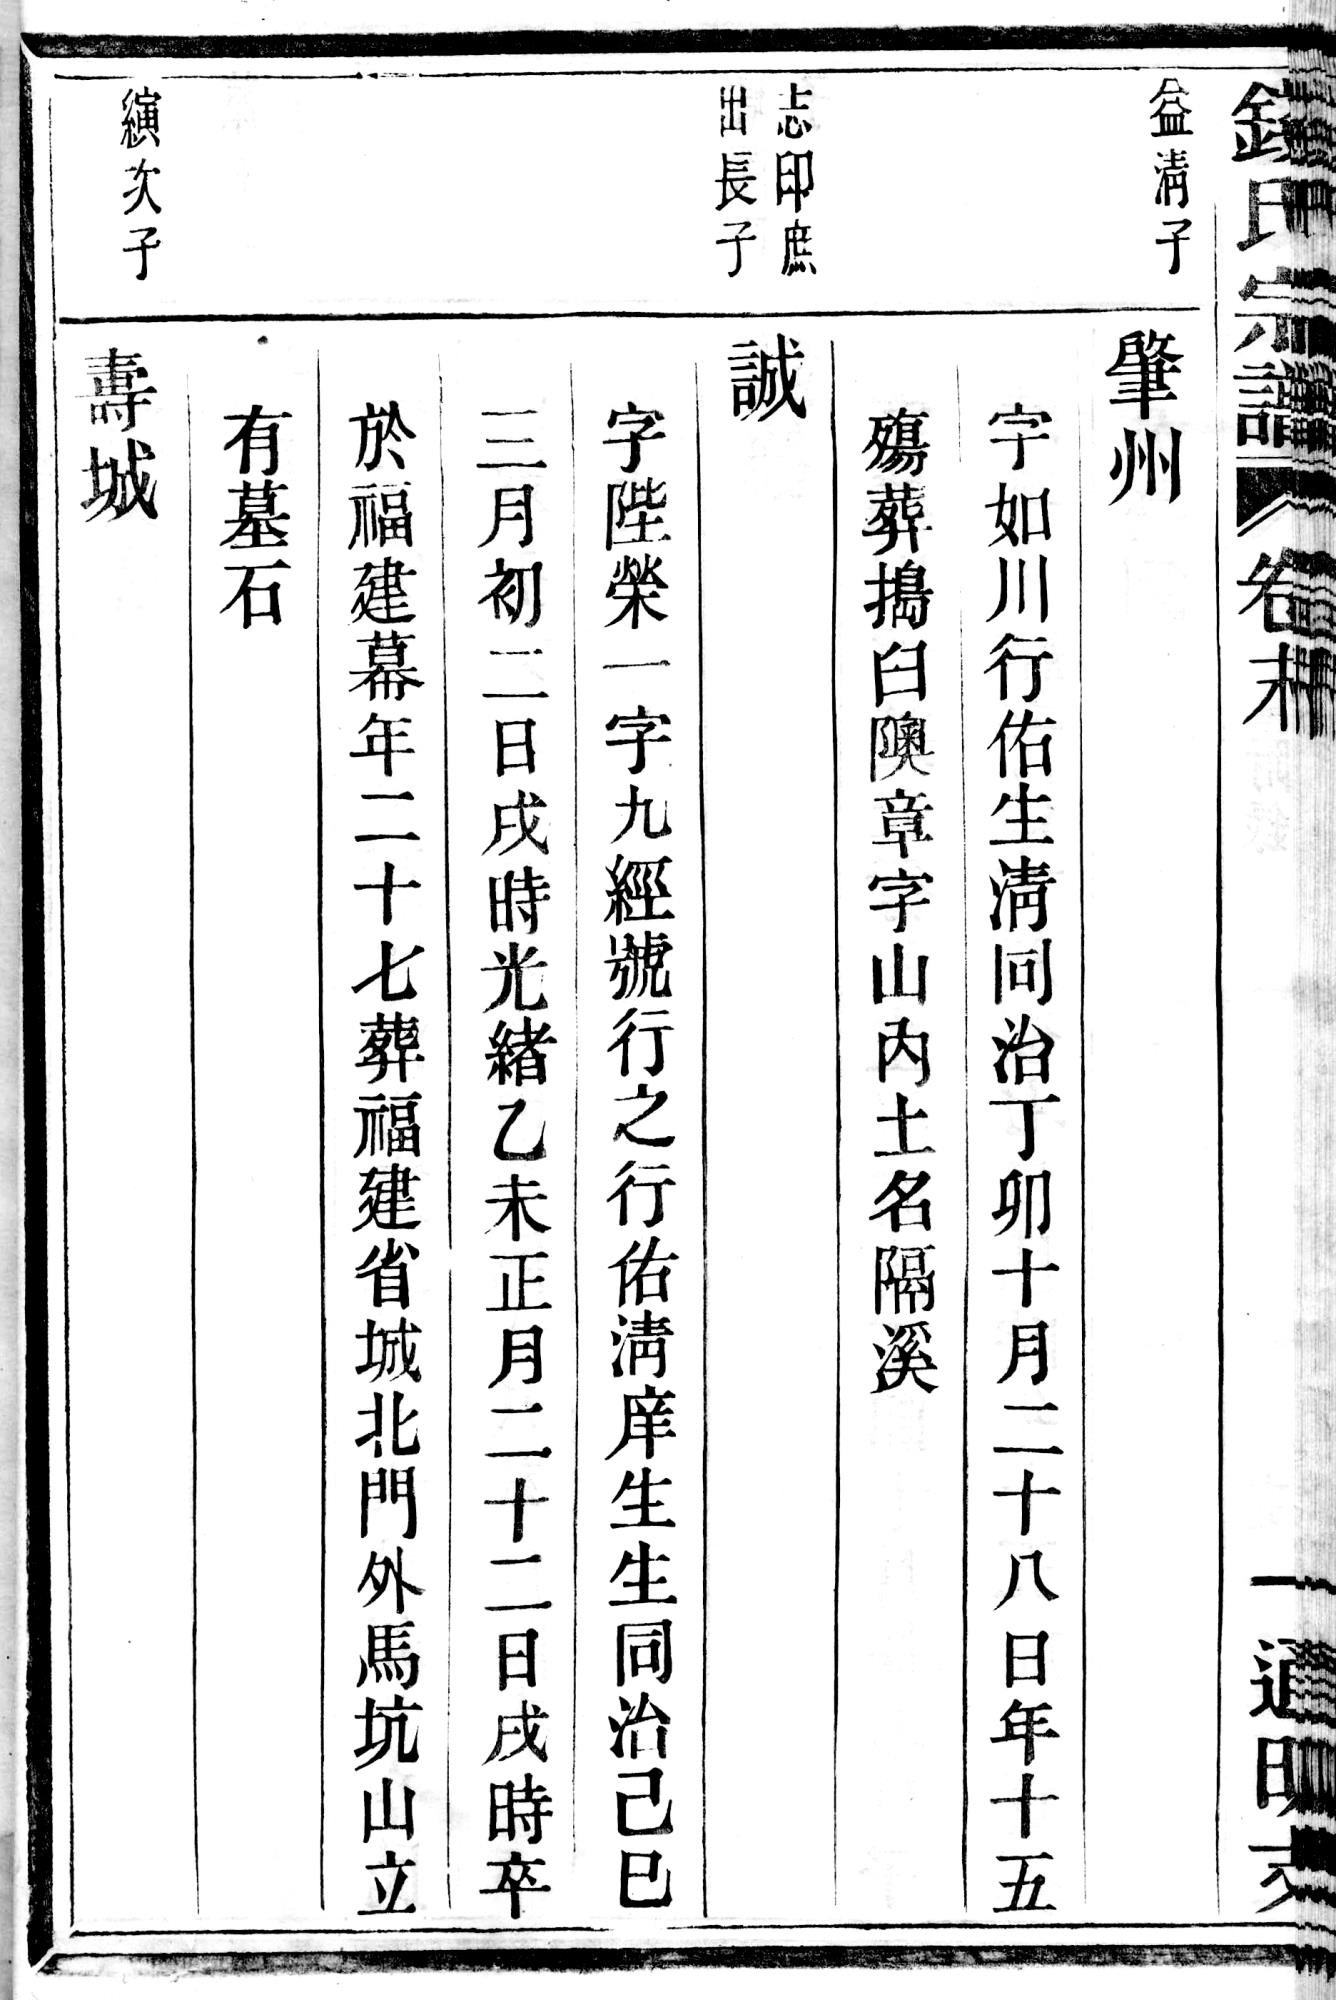 錢氏宗譜 卷末 一 通明
益淸子
肇州
字如川行佑生淸同治丁卯十月二十八日年十五
殤葬搗臼隩章字山內土名隔溪
志印庶
出長子
誠
字陛榮一字九經號行之行佑淸庠生生同治己巳
三月初二日戌時光緖乙未正月二十二日戌時卒
於福建幕年二十七葬福建省城北門外馬坑山立
有墓石
縯次子
壽城